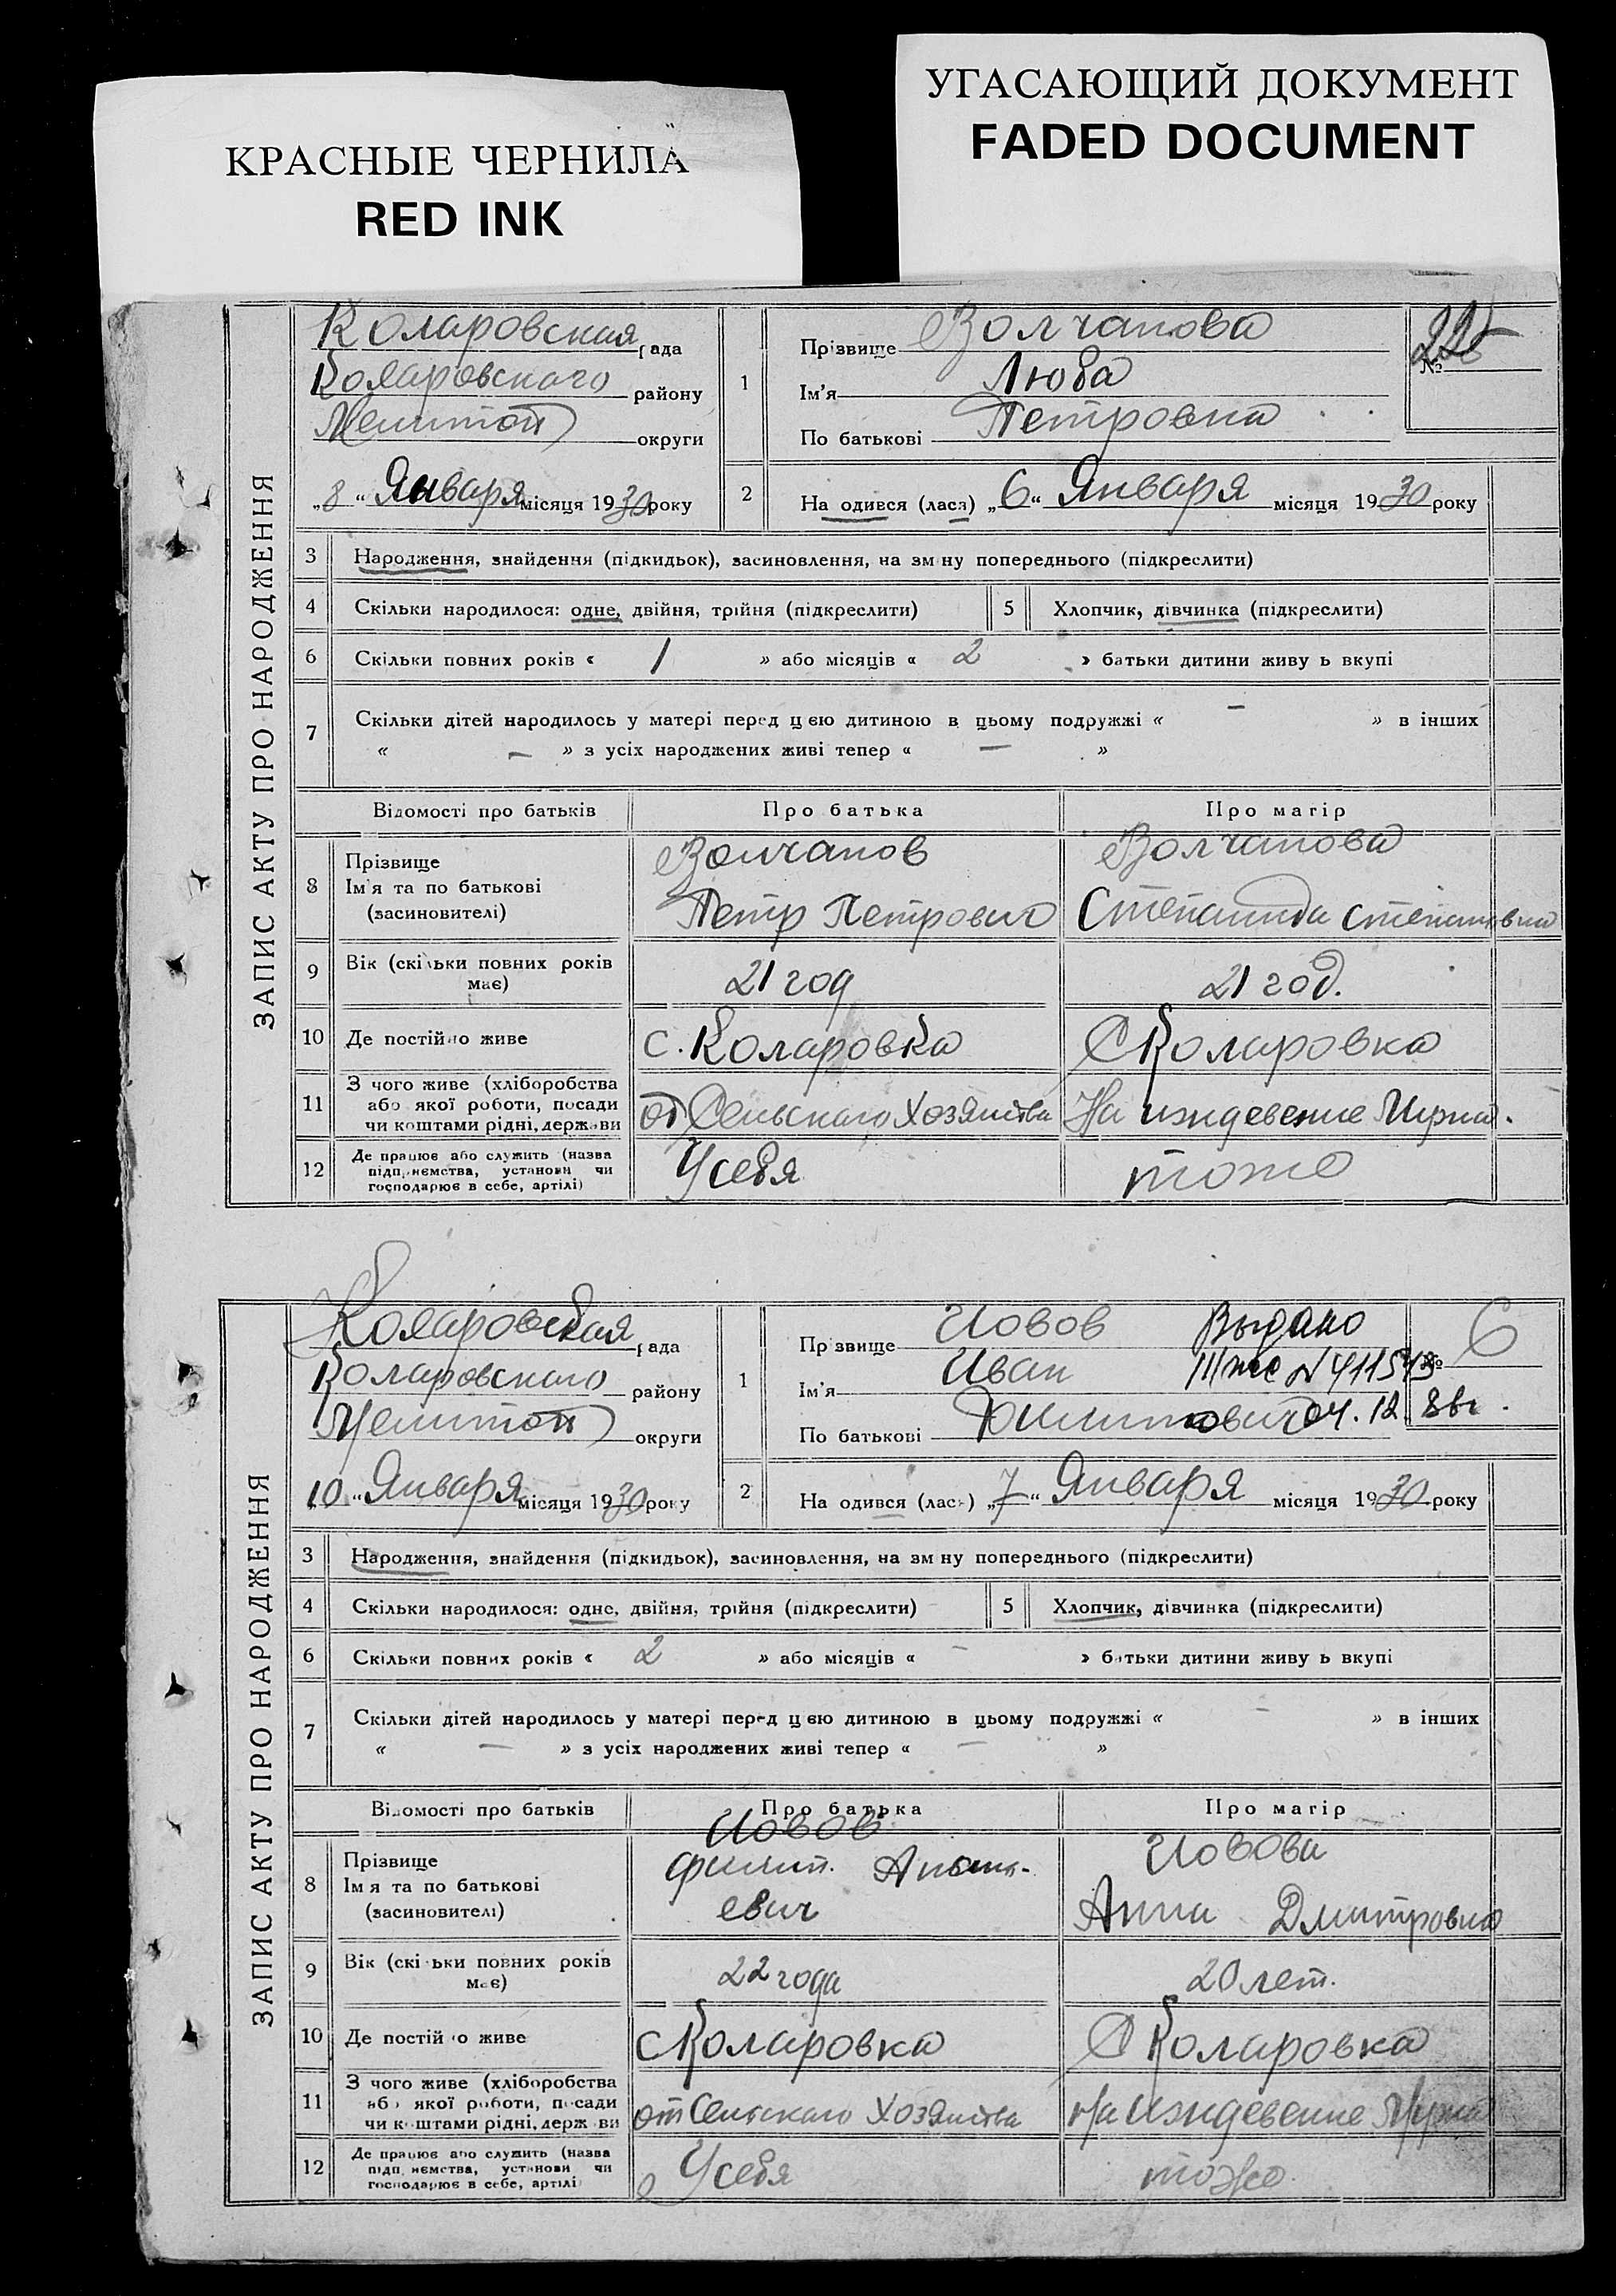 КРАСНЫЕ ЧЕРНИЛА
RED INK
УГАСАЮЩИЙ ДОКУМЕНТ
FADED DOCUMENT
ЗАПИС АКТУ ПРО НАРОДЖЕННЯ
Коларовская рада
Коларовского району
Мелитоп округи
„8“ Января місяця 1930 року
1
Прізвище Волчанова
Ім'я Люба
По батькові Петровна
№
2
На одився (лася) „6“ Января місяця 1930 року
3 Народження, знайдення (підкидьок), засиновлення, на зм ну попереднього (підкреслити)
4 Скільки народилося: одне, двійня, трійня (підкреслити) 5 Хлопчик, дівчинка (підкреслити)
6 Скільки повних років « 1 » або місяців « 2 » батьки дитини живу ь вкупі
7 Скільки дітей народилось у матері перед ц єю дитиною в цьому подружжі « — » в інших
« — » з усіх народжених живі тепер « — »
Відомості про батьків Про батька Про матір
8 Прізвище
Ім'я та по батькові
(засиновителі)
Волчанов
Петр Петрович
Волчанова
Степанида Степановна
9 Вік (скільки повних років
має)
21 год
21 год.
10 Де постійно живе с. Коларовка С Коларовка
11 З чого живе (хліборобства
або якої роботи, посади
чи коштами рідні, держави
от Сельского Хозяйства
На иждевение Мужа.
12 Де працює або служить (назва
підприємства, установи чи
господарює в себе, артілі)
У себя
тоже
ЗАПИС АКТУ ПРО НАРОДЖЕННЯ
Коларовская рада
Коларовского району
Мелитоп округи
„10“ Января місяця 1930 року
1
Пр звище Иовов
Ім'я Иван
По батькові Филиппович
Выдано
04.12.
№ 6
2
На одився (лася) „7“ Января місяця 1930 року
3 Народження, знайдення (підкидьок), засиновлення, на зм ну попереднього (підкреслити)
4 Скільки народилося: одне, двійня, трійня (підкреслити) 5 Хлопчик, дівчинка (підкреслити)
6 Скільки повних років « 2 » або місяців « — » батьки дитини живу ь вкупі
7 Скільки дітей народилось у матері перед ц єю дитиною в цьому подружжі « — » в інших
« — » з усіх народжених живі тепер « — »
Відомості про батьків Про батька Про матір
8 Прізвище
Ім я та по батькові
(засиновителі)
Иовов
Филип.
евич
Иовова
Анна Дмитровна
9 Вік (скільки повних років
має)
22 года
20 лет.
10 Де постій о живе с Коларовка С Коларовка
11 З чого живе (хліборобства
або якої роботи, посади
чи коштами рідні, держ ви
от Сельского Хозяйства
На иждевение Мужа
12 Де працює або служить (назва
підприємства, установи чи
господарює в себе, артілі
У себя
тоже.